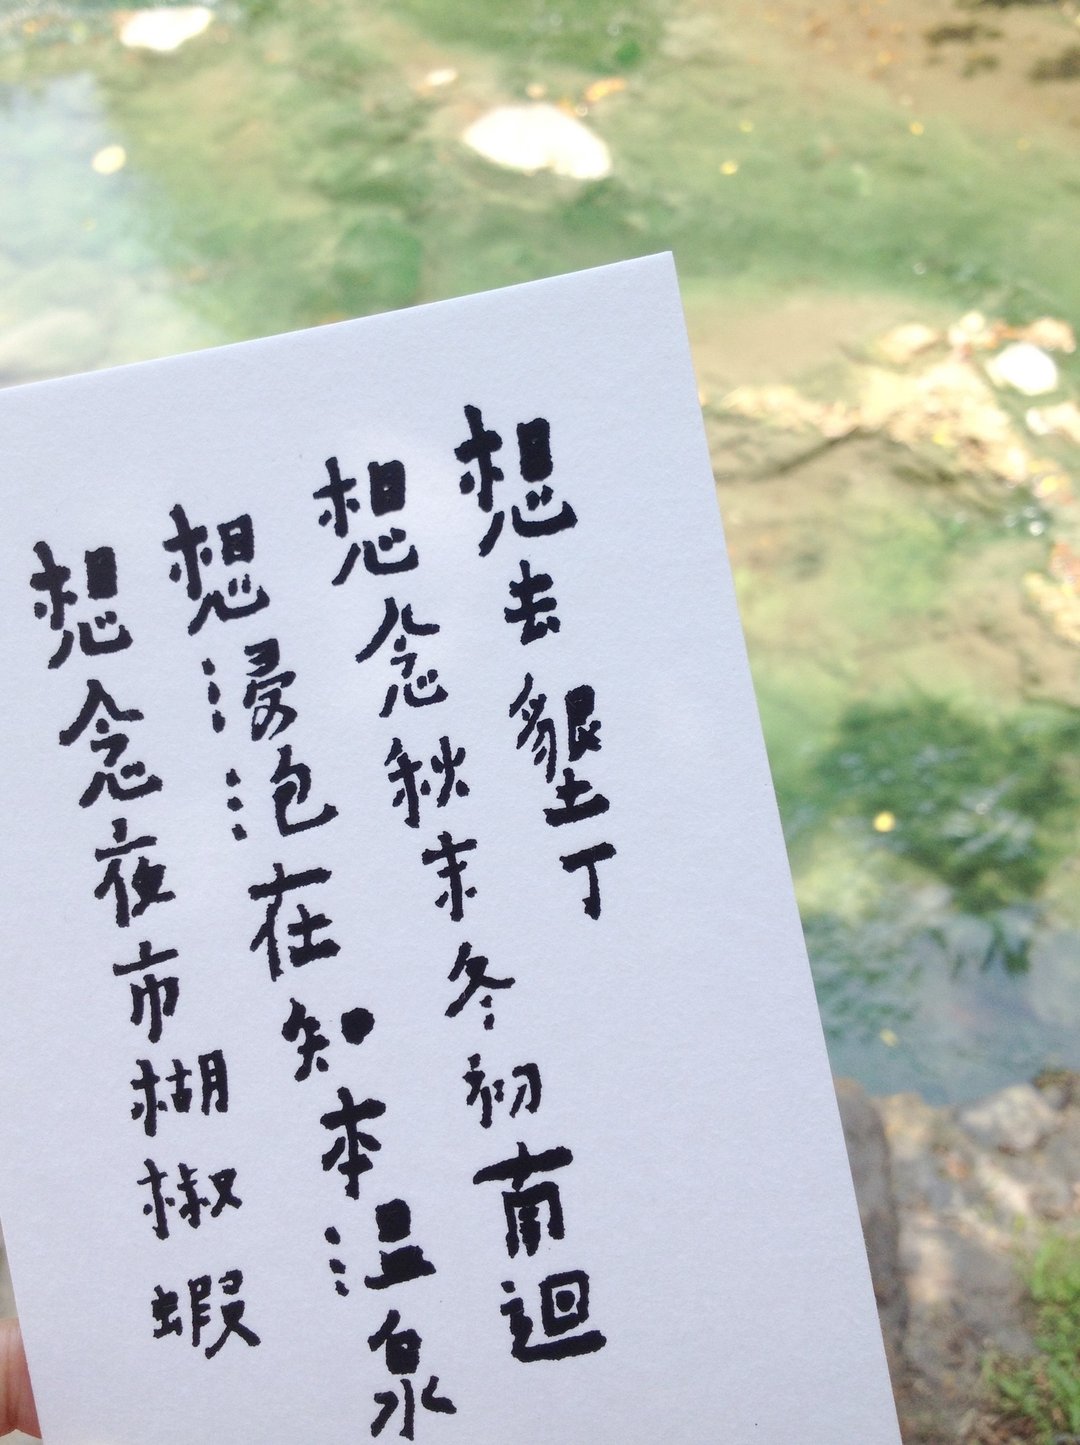 想去墾丁
想念秋末冬初南迴
想浸泡在知本温泉
想念夜市楜椒蝦